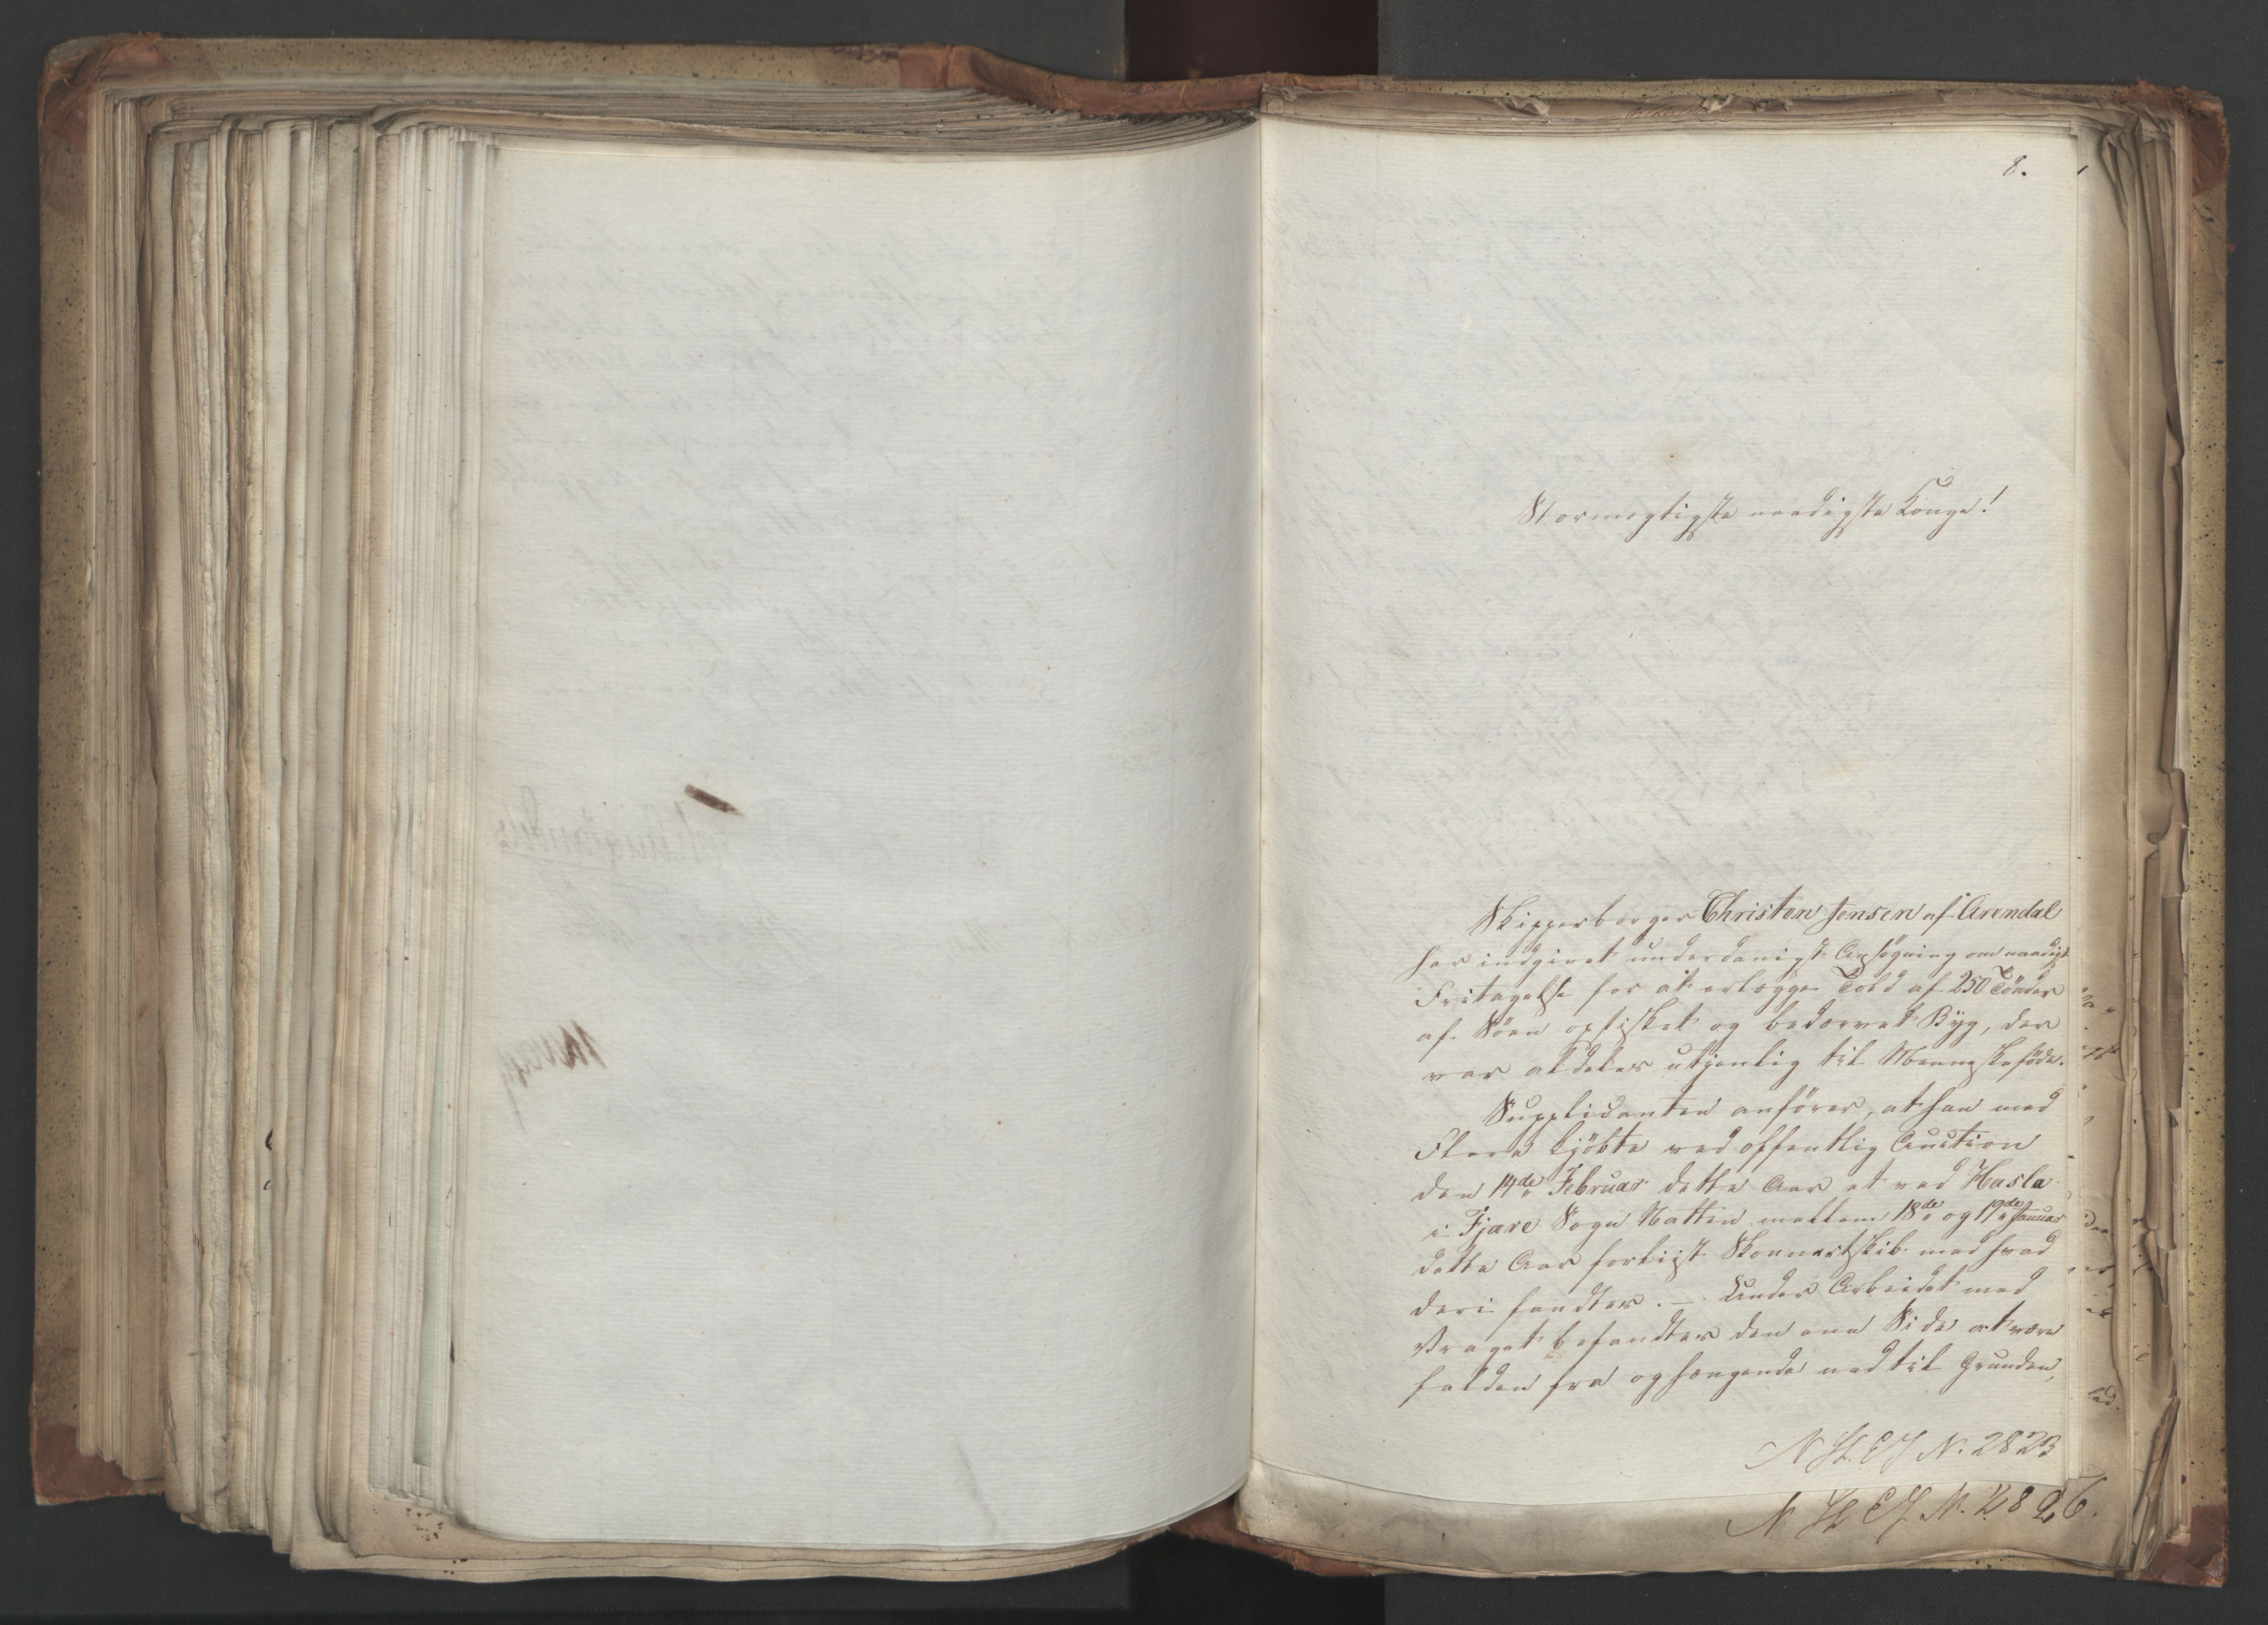 8.
Stormægtigste naadigste Konge!
Skipperborger Christen Jensen af Arendal
har indgivet underdanigst Ansøgning om naadigst
Fritagelse for at erlægge Told af 250 Tönder
af Söen opfisket og bedærvet Byg, der
var aldeles utjenlig til Menneskeföde.
Supplicanten anförer, at han med
Flere kjöbte ved offentlig Auction
den 14de Februar dette Aar et ved Hasla
i Fjære Sogn Natten mellem 18de og 19de Januar
dette Aar forliist Skonnertskib med hvad
deri fandtes. — Under Arbeidet med
Vraget befandtes den ene Side at være
falden fra og hængende ned til Grunden,
N. 2823
N. 2826.